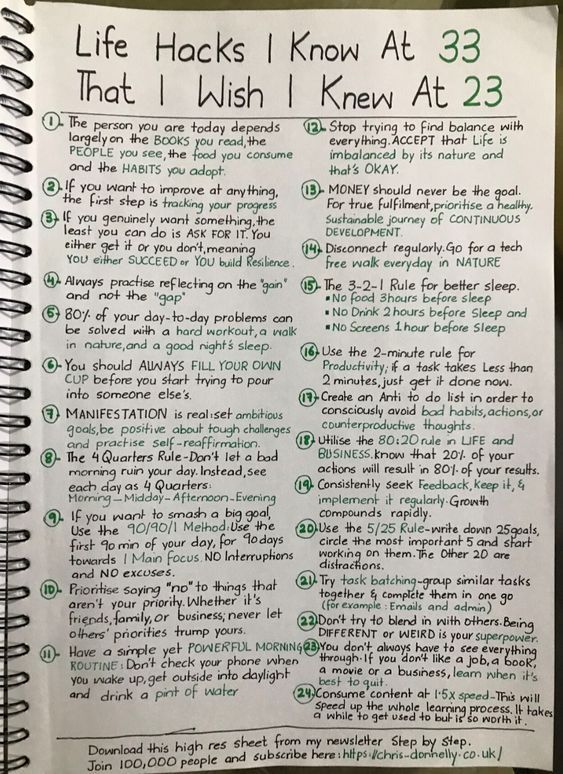 Life Hacks I Know At 33
That I Wish I Knew At 23
1. The person you are today depends
largely on the BOOKS you read, the
PEOPLE you see, the food you consume
and the HABITS you adopt.
2. If you want to improve at anything,
the first step is tracking your progress
3. If you genuinely want something, the
least you can do is ASK FOR IT. You
either get it or you don't, meaning
YOU either SUCCEED or YOU build Resilience.
4. Always practise reflecting on the "gain"
and not the "gap"
5. 80% of your day-to-day problems can
be solved with a hard workout, a walk
in nature, and a good night's sleep.
6. You should ALWAYS FILL YOUR OWN
CUP before you start trying to pour
into someone else's.
7. MANIFESTATION is real: set ambitious
goals, be positive about tough challenges
and practise self-reaffirmation.
8. The 4 Quarters Rule - Don't let a bad
morning ruin your day. Instead, see
each day as 4 Quarters:
Morning - Midday - Afternoon - Evening
9. If you want to smash a big goal,
Use the 90/90/1 Method: Use the
first 90 min of your day, for 90 days
towards 1 Main focus. NO Interruptions
and NO excuses.
10. Prioritise saying "no" to things that
aren't your priority. Whether it's
friends, family, or business; never let
others' priorities trump yours.
11. Have a simple yet POWERFUL MORNING
ROUTINE: Don't check your phone when
you wake up, get outside into daylight
and drink a pint of water
12. Stop trying to find balance with
everything. ACCEPT that Life is
imbalanced by its nature and
that's OKAY.
13. MONEY should never be the goal.
For true fulfilment, prioritise a healthy.
Sustainable journey of CONTINUOUS
DEVELOPMENT.
14. Disconnect regularly. Go for a tech
free walk everyday in NATURE
15. The 3-2-1 Rule for better sleep.
▪ No food 3 hours before sleep
▪ No Drink 2 hours before Sleep and
▪ No Screens 1 hour before Sleep
16. Use the 2-minute rule for
Productivity; if a task takes Less than
2 minutes, just get it done now.
17. Create an Anti to do list in order to
consciously avoid bad habits, actions, or
counterproductive thoughts.
18. Utilise the 80:20 rule in LIFE and
BUSINESS. know that 20% of your
actions will result in 80% of your results.
19. Consistently seek Feedback, keep it, &
implement it regularly. Growth
compounds rapidly.
20. Use the 5/25 Rule - write down 25 goals,
circle the most important 5 and start
working on them. The Other 20 are
distractions.
21. Try task batching - group similar tasks
together & complete them in one go
(for example: Emails and admin)
22. Don't try to blend in with others. Being
DIFFERENT or WEIRD is your superpower.
23. You don't always have to see everything
through. If you don't like a job, a book,
a movie or a business, learn when it's
best to quit.
24. Consume content at 1.5X speed - This will
speed up the whole learning process. It takes
a while to get used to but is so worth it.
Download this high res sheet from my newsletter Step by Step.
Join 100,000 people and subscribe here: https://chris-donnelly.co.uk/